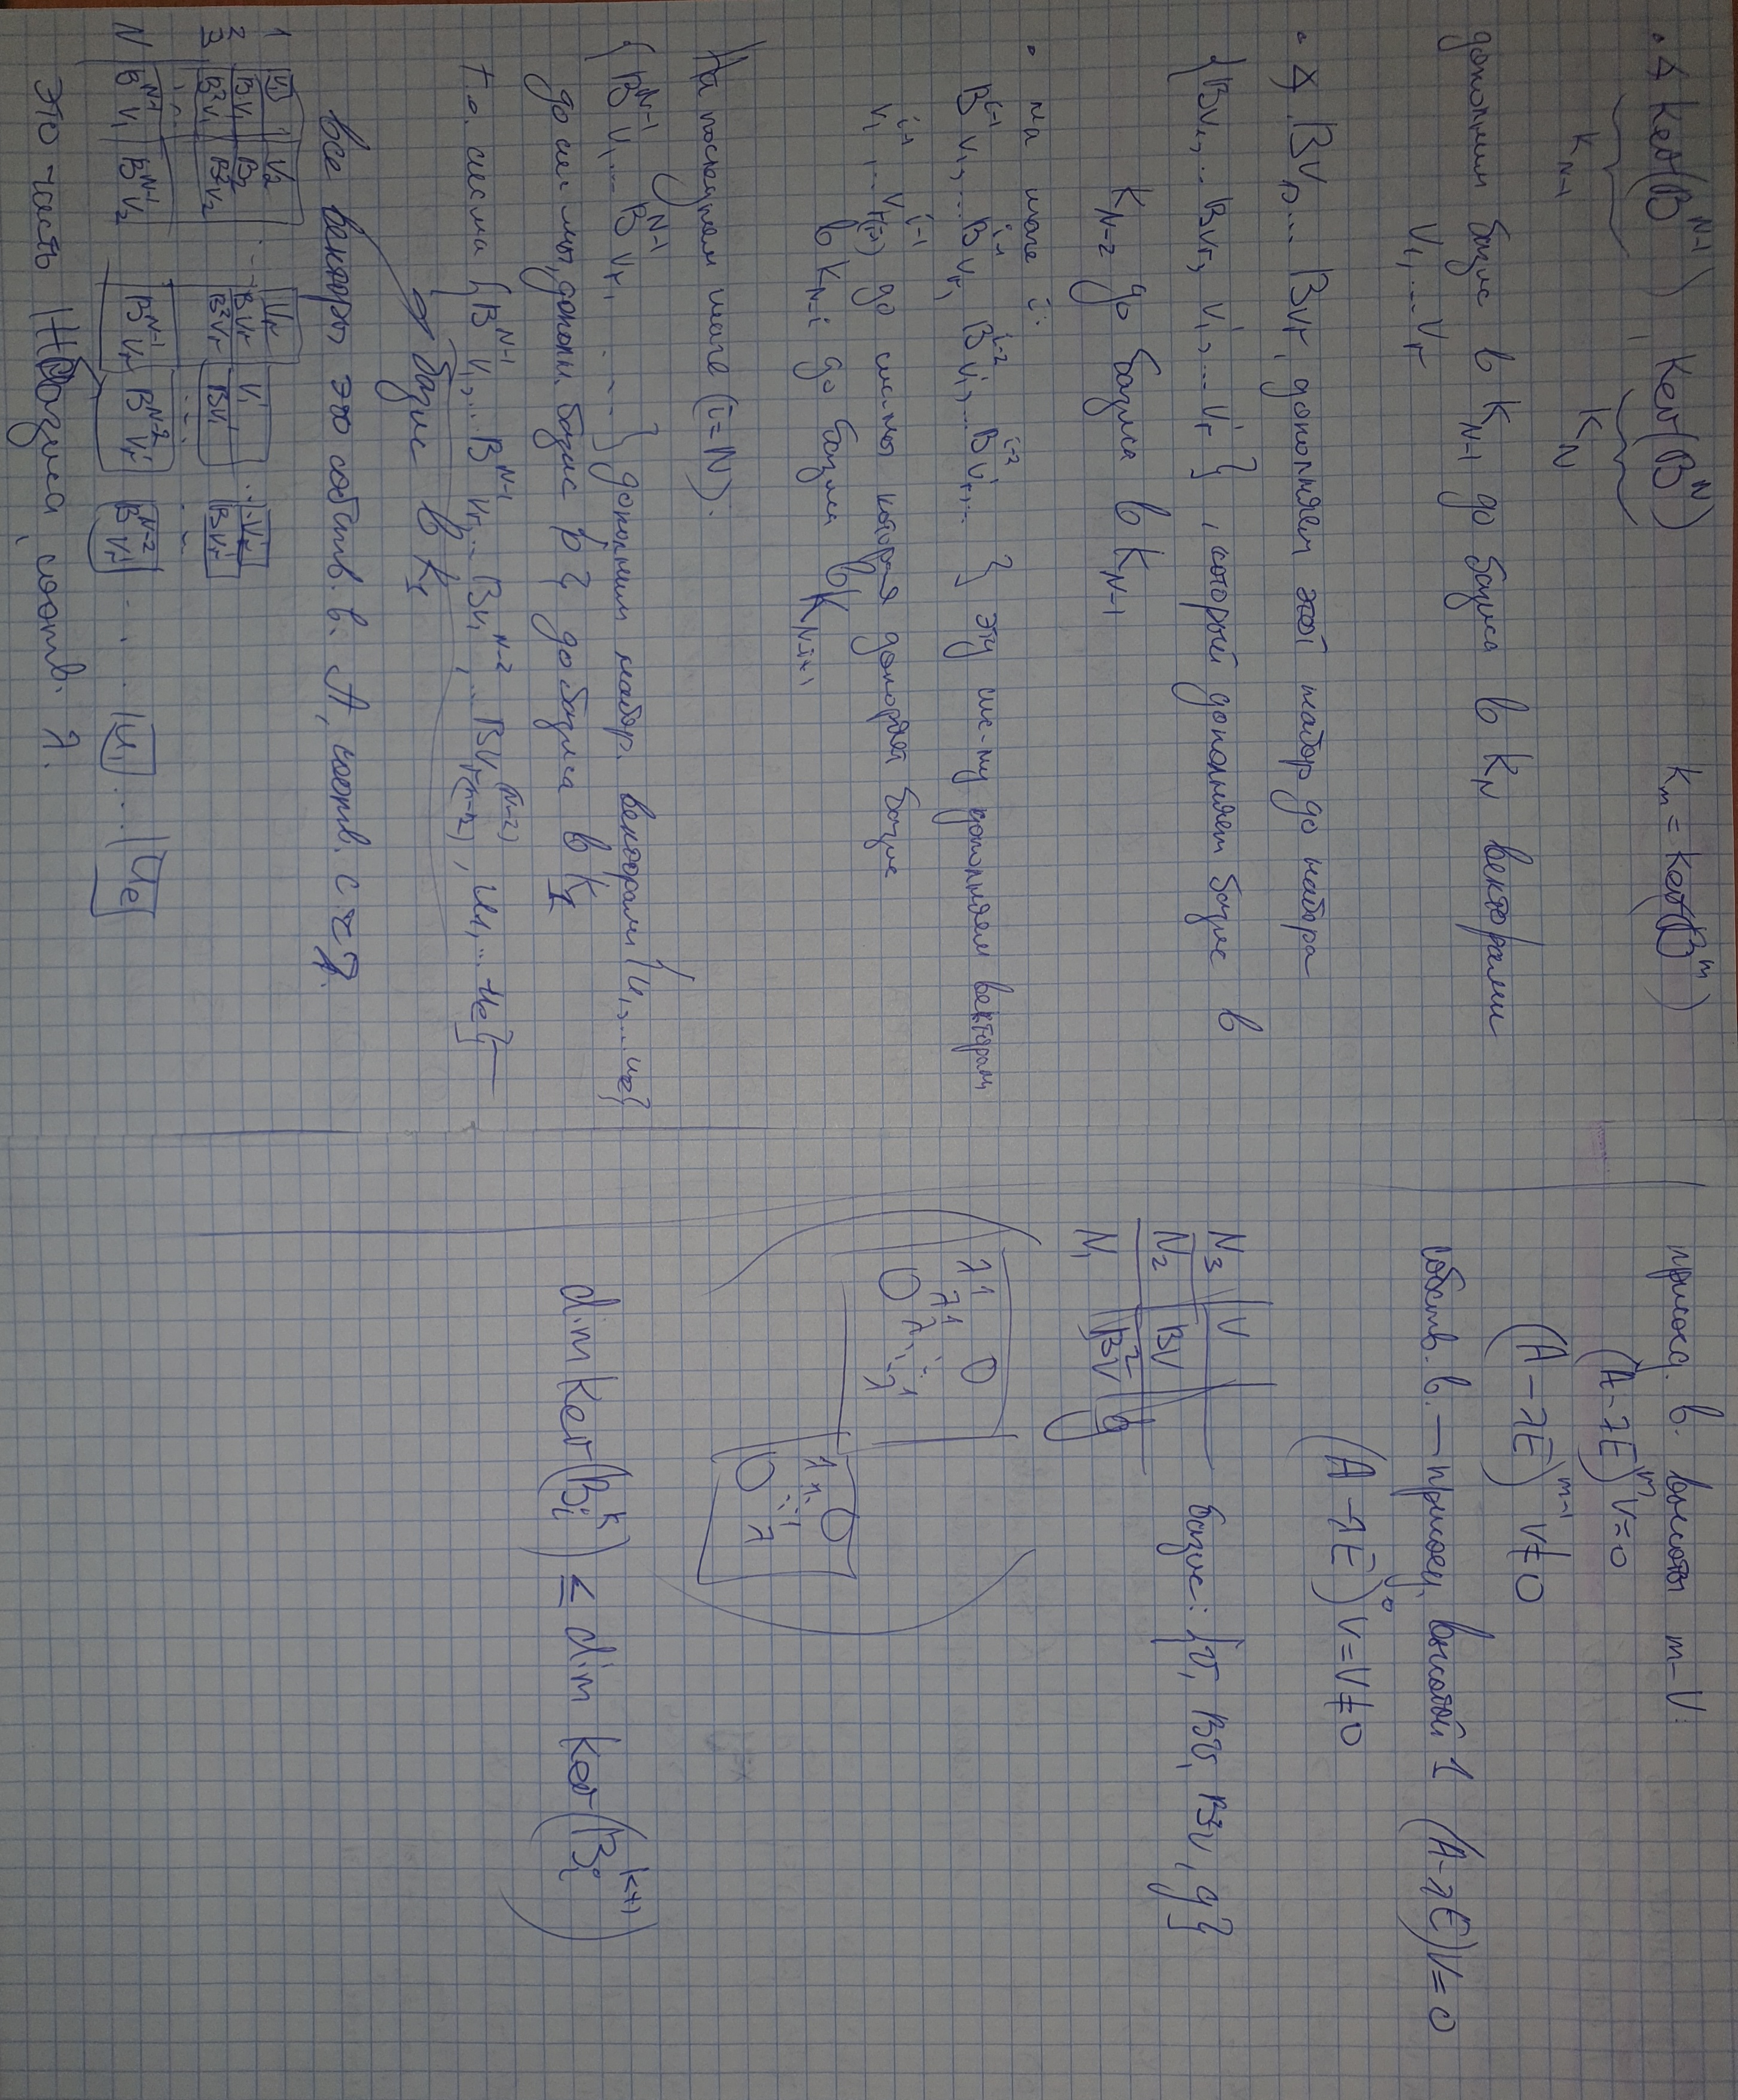 • ∢ Ker(B^{N-1}), Ker(B^N) K_m = Ker(B^m)
K_{N-1} K_N
дополним базис в K_{N-1} до базиса в K_N векторами
V_1, ... V_r
• ∢. BV_1, ... BV_r, дополняем этот набор до набора
{BV_1, ... BV_r, V_1', ... V_r'}, который дополняет базис в
K_{N-2} до базиса в K_{N-1}
• на шаге i:
B^{i-1}V_1, ... B^{i-1}V_r, B^{i-2}V_1', ... B^{i-2}V_r', ... } эту сис-му дополняем векторами
V_1^{i-1}, ... V_{r(i-1)}^{i-1} до системы которая дополняет базис
в K_{N-i} до базиса в K_{N-i+1}
На последнем шаге (i=N).
{B^{N-1}V_1, ... B^{N-1}V_r, ... } дополним набор. векторами {u_1, ... u_e}
до сис-мы, дополн. базис {0} до базиса в K_1
т.о. система {B^{N-1}V_1, ... B^{N-1}V_r, ... BV_1^{N-2}, ... BV_{r(N-2)}^{(N-2)}, u_1, ... u_e} –
базис в K_1
все векторы это собств. в. A, соотв. с.з. λ.
1 V_1 V_2 ... V_r
2 BV_1 B_2 ... BV_r V_1' ... V_r'
3 B²V_1 B²V_2 B²V_r BV_1' BV_r'
N B^{N-1}V_1 B^{N-1}V_2 B^{N-1}V_r B^{N-2}V_1' B^{N-2}V_r' ... u_1 ... u_e
это часть ЖБазиса, соотв. λ.
присоед. в. высоты m – V:
(A-λE)^m V=0
(A-λE)^{m-1} V≠0
собств. в. – присоед. высотой 1 (A-λE)V=0
(A-λE)^0 V=V≠0
N_3 V
N_2 BV
N_1 B²V g
базис: {V, BV, B²V, g}
λ 1
λ 1 0
0 λ 1
λ
λ 1 0
0 λ
dim Ker(B_i^k) ≤ dim Ker(B_i^{k+1})